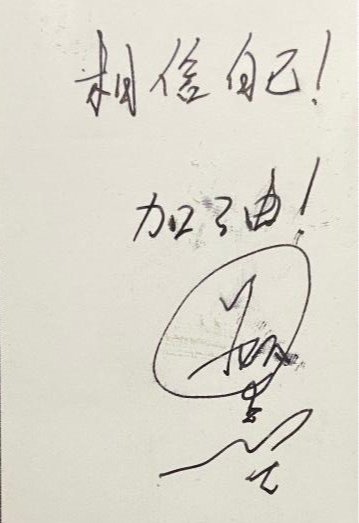 相信自己!
加油!